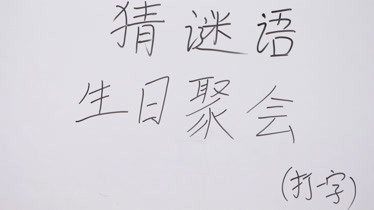 猜谜语
生日聚会
(打一字)